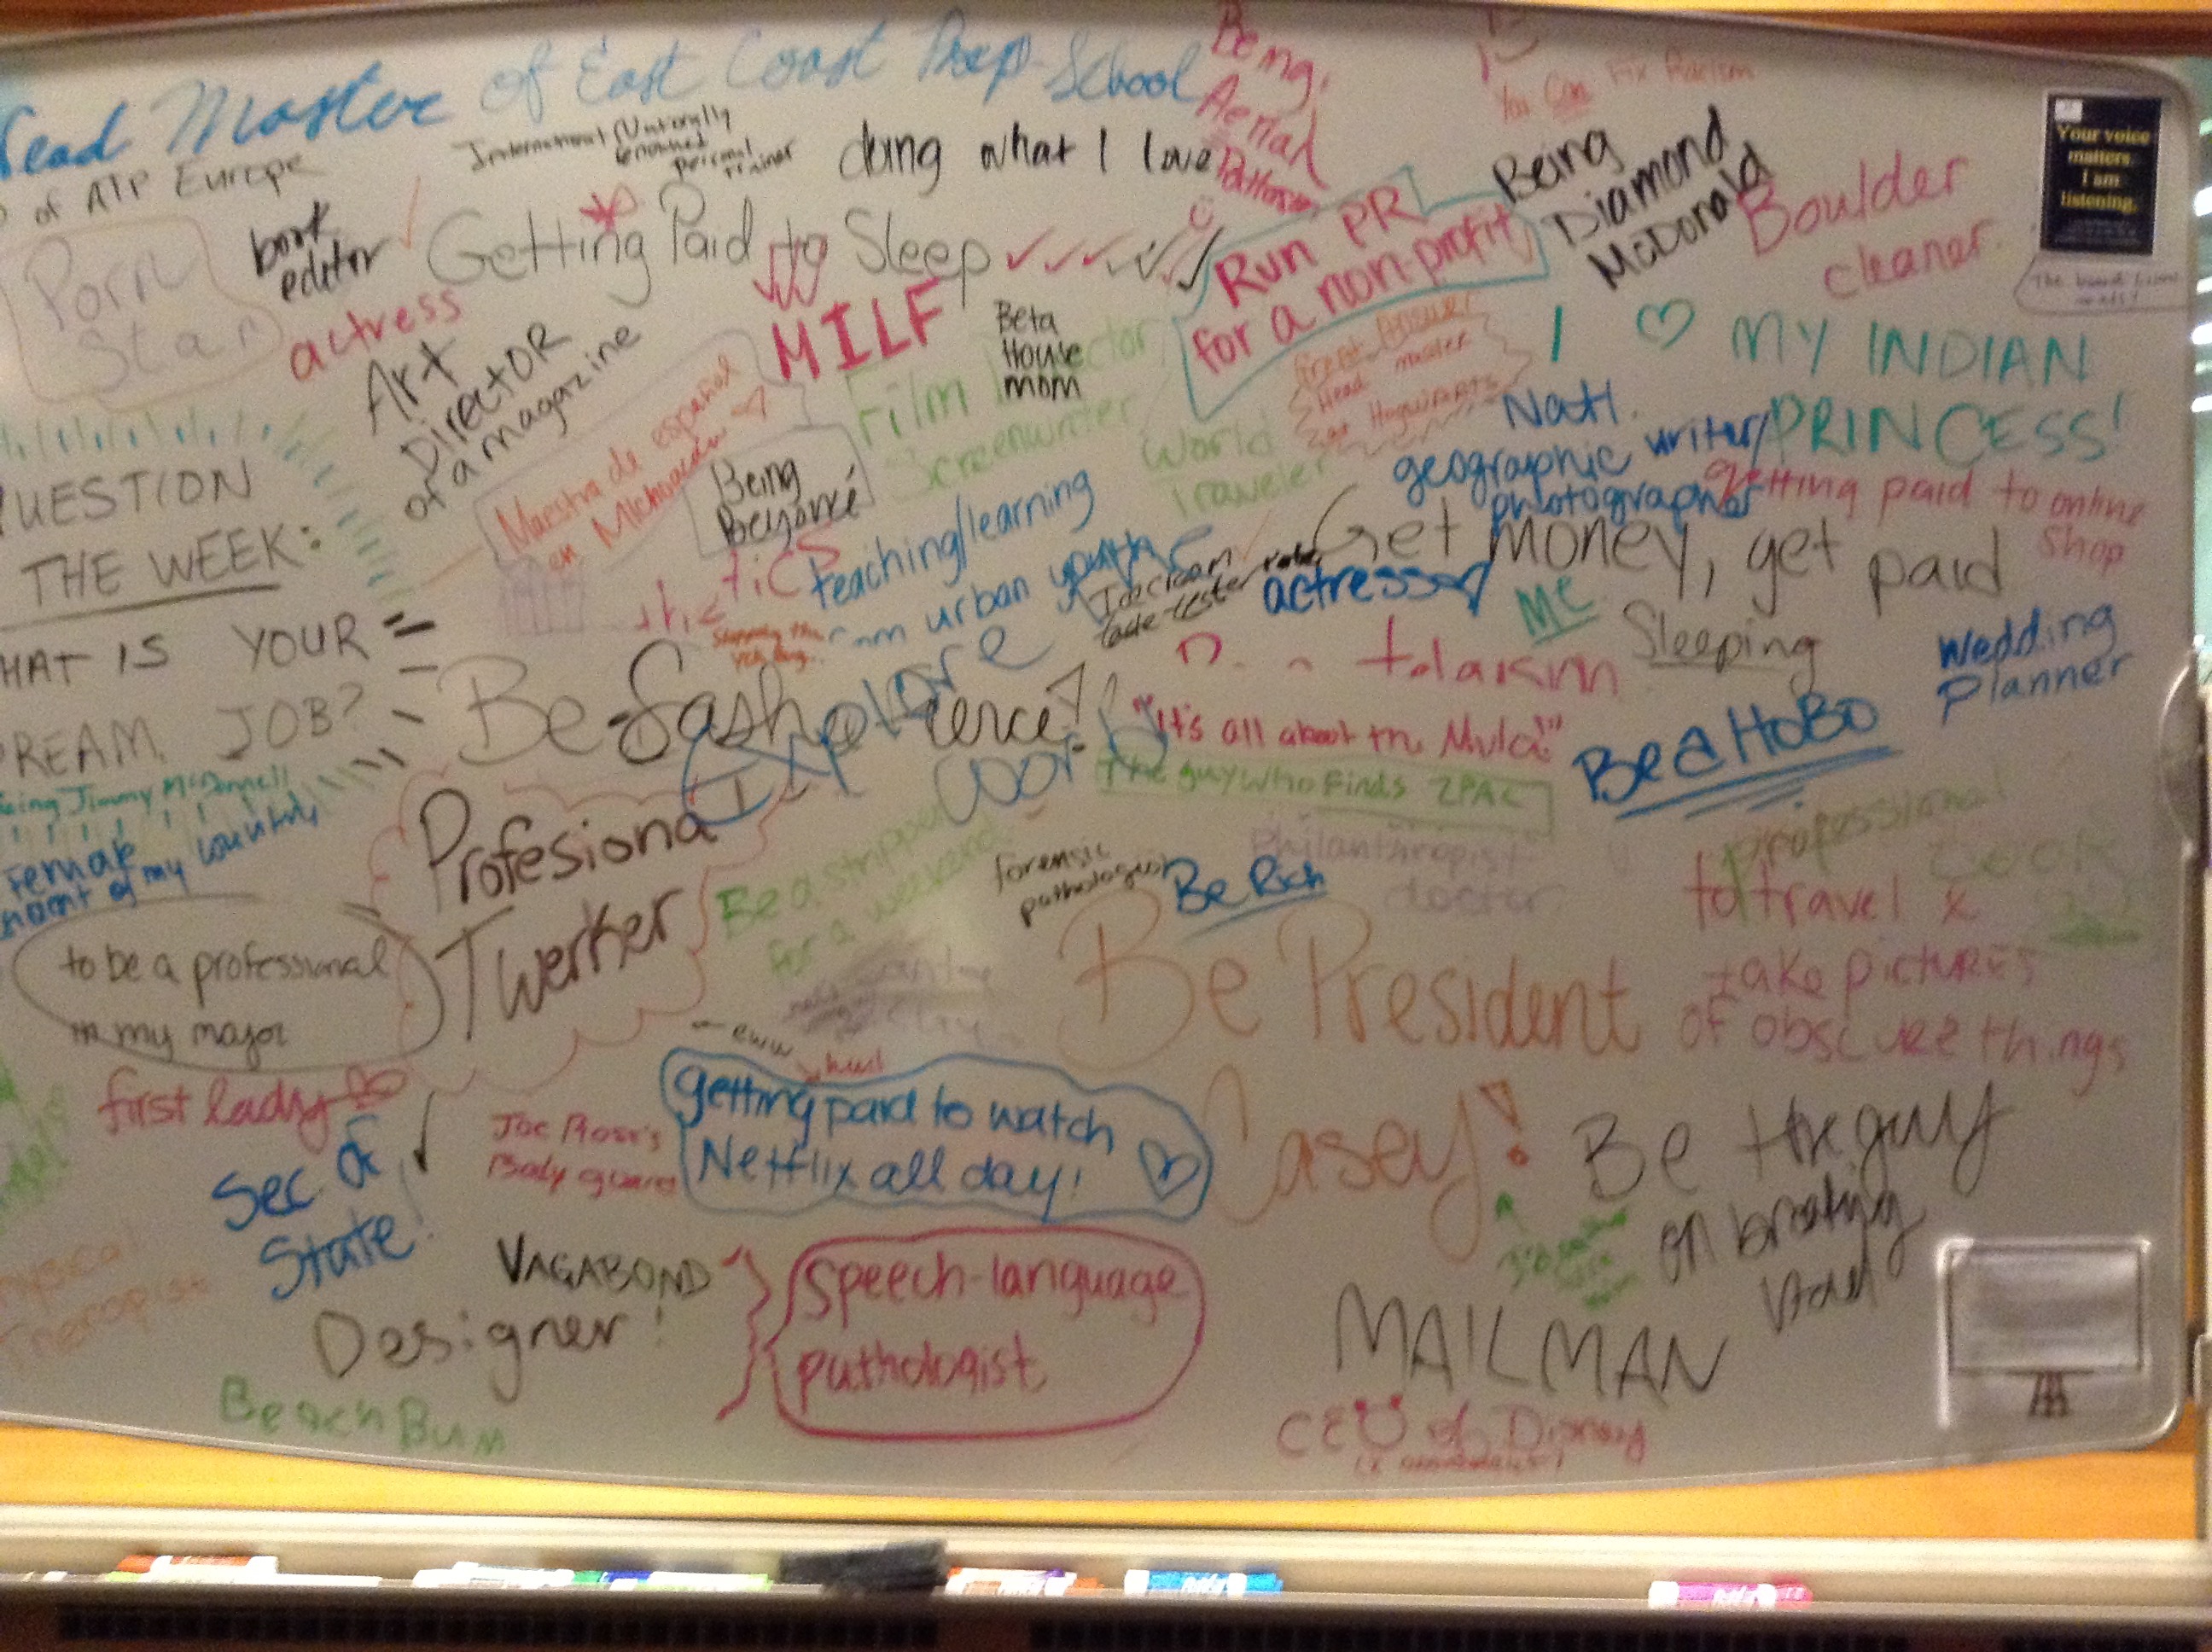 Head Master of East Coast Prep School
of ATP Europe
International
personal
trainer
doing what I love
Being
Aerial
You Can Fix Racism
Being
Diamond
McDonald
Boulder
cleaner
Your voice
matters.
I am
listening.
Porn
Star
book
editor
Getting Paid to Sleep
actress
Art
Director
of a magazine
MILF
Beta
House
mom
Film Director
Screenwriter
Run PR
for a non-profit
Great Answer
Head master
Hogwarts
World
Traveler
I ♡ MY INDIAN
PRINCESS!
Natl.
geographic writer/
photographer
getting paid to online
shop
Maestra de español
en Michoacán
Being
Beyoncé
QUESTION
THE WEEK:
HAT IS YOUR
DREAM JOB?
teaching/learning
urban youth
taste-tester
actress
Get money, get paid
Me
Sleeping
Wedding
Planner
Be Sasha Fierce!
Explore
World
"It's all about the Mula!"
The guy who finds 2PAC
Be a HOBO
Being Jimmy McDonnell
Female
of my country
Profesional
Twerker
Be a stripper
for a weekend
forensic
pathologist
Be Rich
Philanthropist
doctor
professional
cook
to travel &
take pictures
of obscure things
to be a professional
in my major
Be President
eww
first lady
Sec. of
State!
Joe Rose's
Body guard
getting paid to watch
Netflix all day!
Casey!
Be the guy
on breaking
bad
physical
Therapist
VAGABOND
Designer!
speech-language
pathologist
MAILMAN
Beach Bum
CEO of Disney